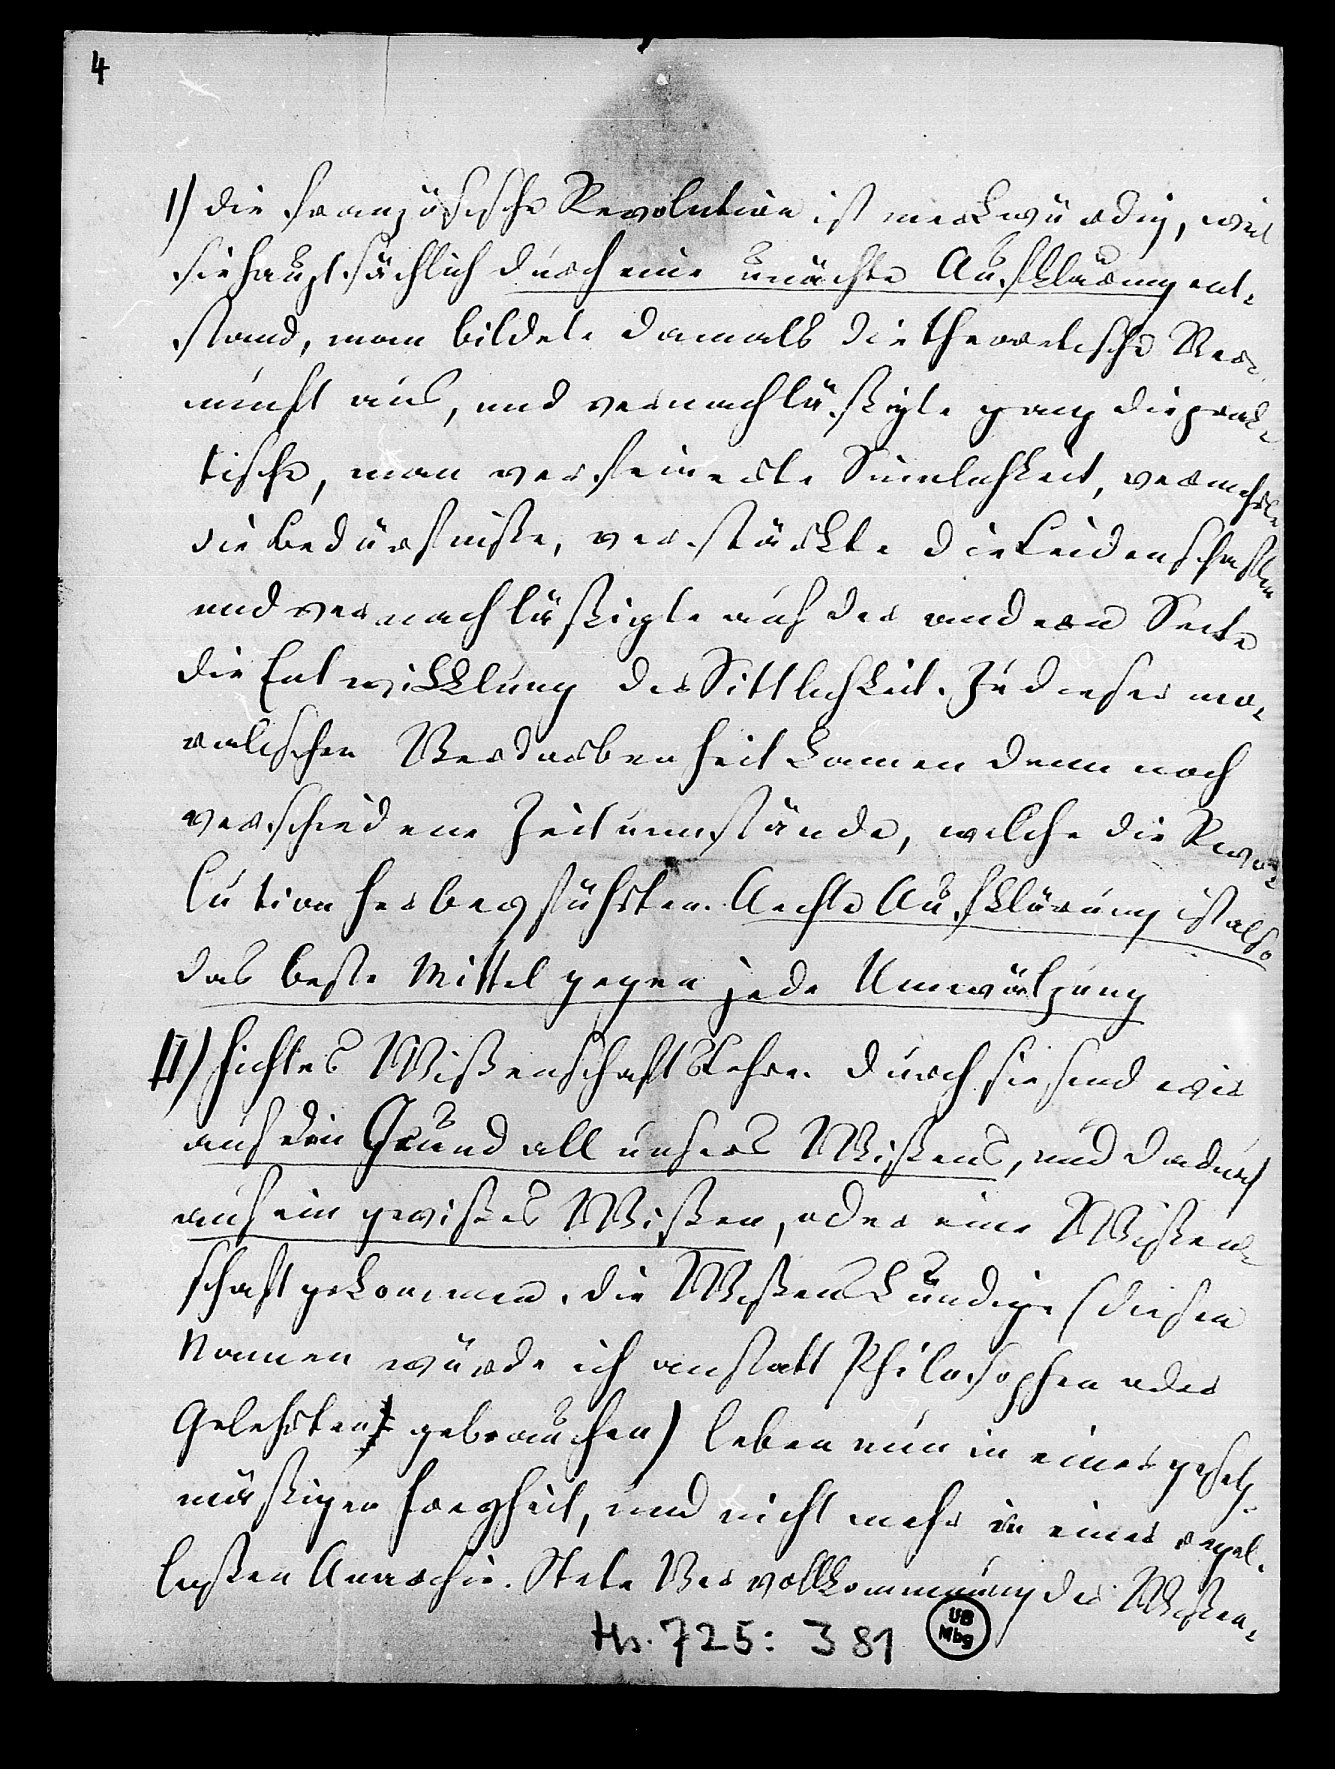 4
I) die französische Revolution ist merkwürdig, weil
sie hauptsächlich durch eine unächte Aufklärung ent-
stand, man bildete damals die theoretische Ver-
nunft aus, und vernachläßigte ganz die prak-
tische, man verfeinerte Sinnlichkeit, vermehrte
die Bedürfniße, verstärkte die Leidenschaften
und vernachläßigte auf der andern Seite
die Entwikklung der Sittlichkeit. Zu dieser mo-
ralischen Verdorbenheit kamen denn noch
verschiedene Zeitumstände, welche die Revo-
lution herbeyführten. Aechte Aufklärung ist also
das beste Mittel gegen jede Umwälzung
II) Fichtes Wißenschaftslehre. Durch sie sind wir
auf den Grund all unsers Wißens, und dadurch
auf ein gewißes Wißen, oder eine Wißen-
schaft gekommen. die Wißenskündige (diesen
Namen würde ich anstatt Philosophen oder
Gelehrten gebrauchen) leben nun in einer gesetz-
mäßigen Freyheit, und nicht mehr in einer regel-
loßen Anarchie. Stete Vervollkommnung der Wißen-
Hs. 725: 381
UB
Mbg